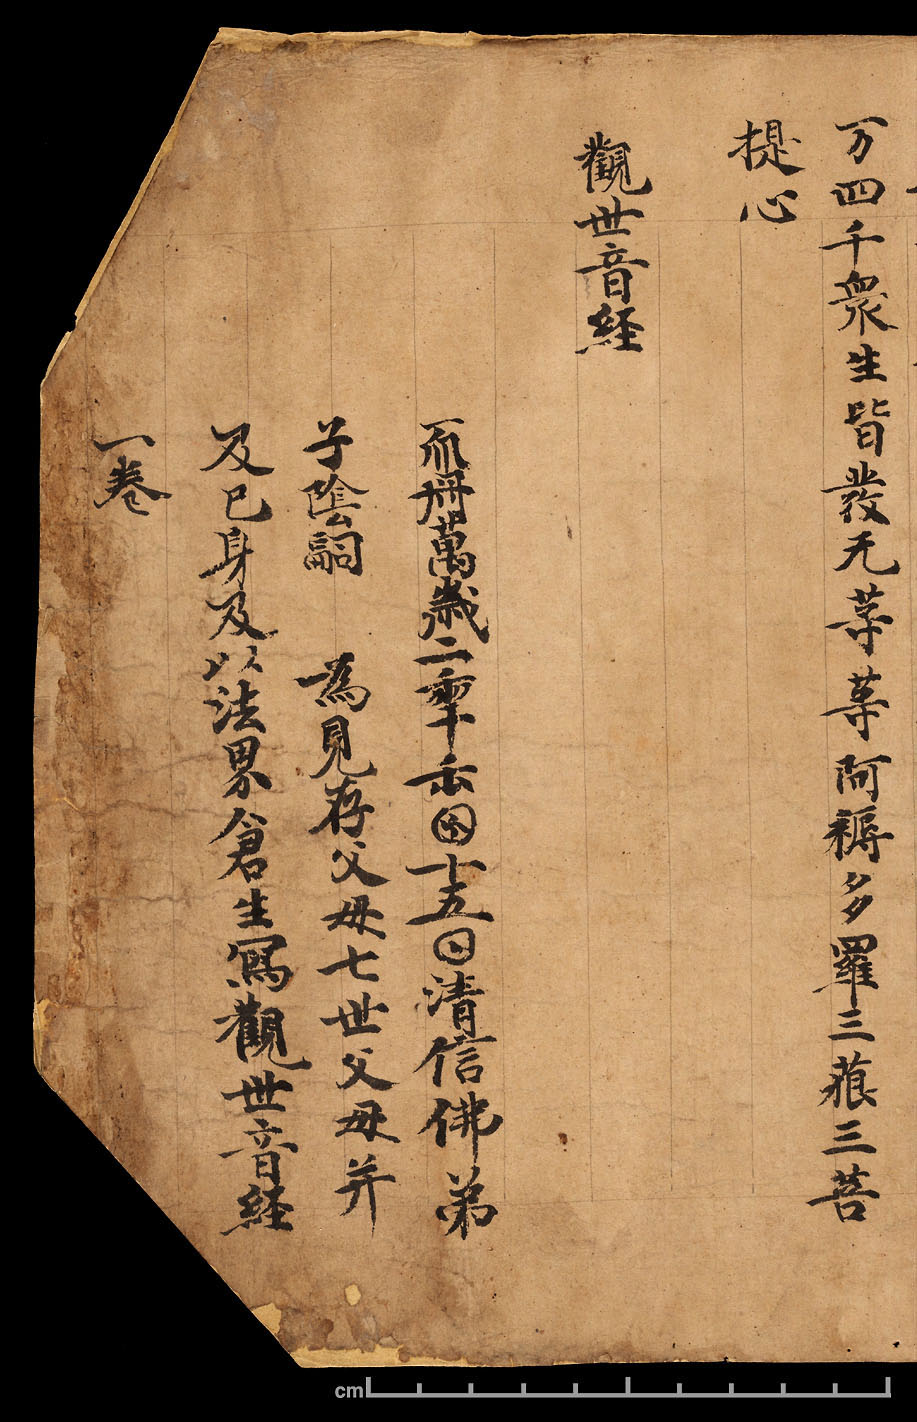 万四千衆生皆發无等等阿耨多羅三藐三菩
提心
觀世音經
𠀑冊萬歲二𠡦𠙺囝十五𡆠清信佛弟
子陰嗣 為見存父母七世父母并
及己身及以法界倉生寫觀世音経
一卷
cm